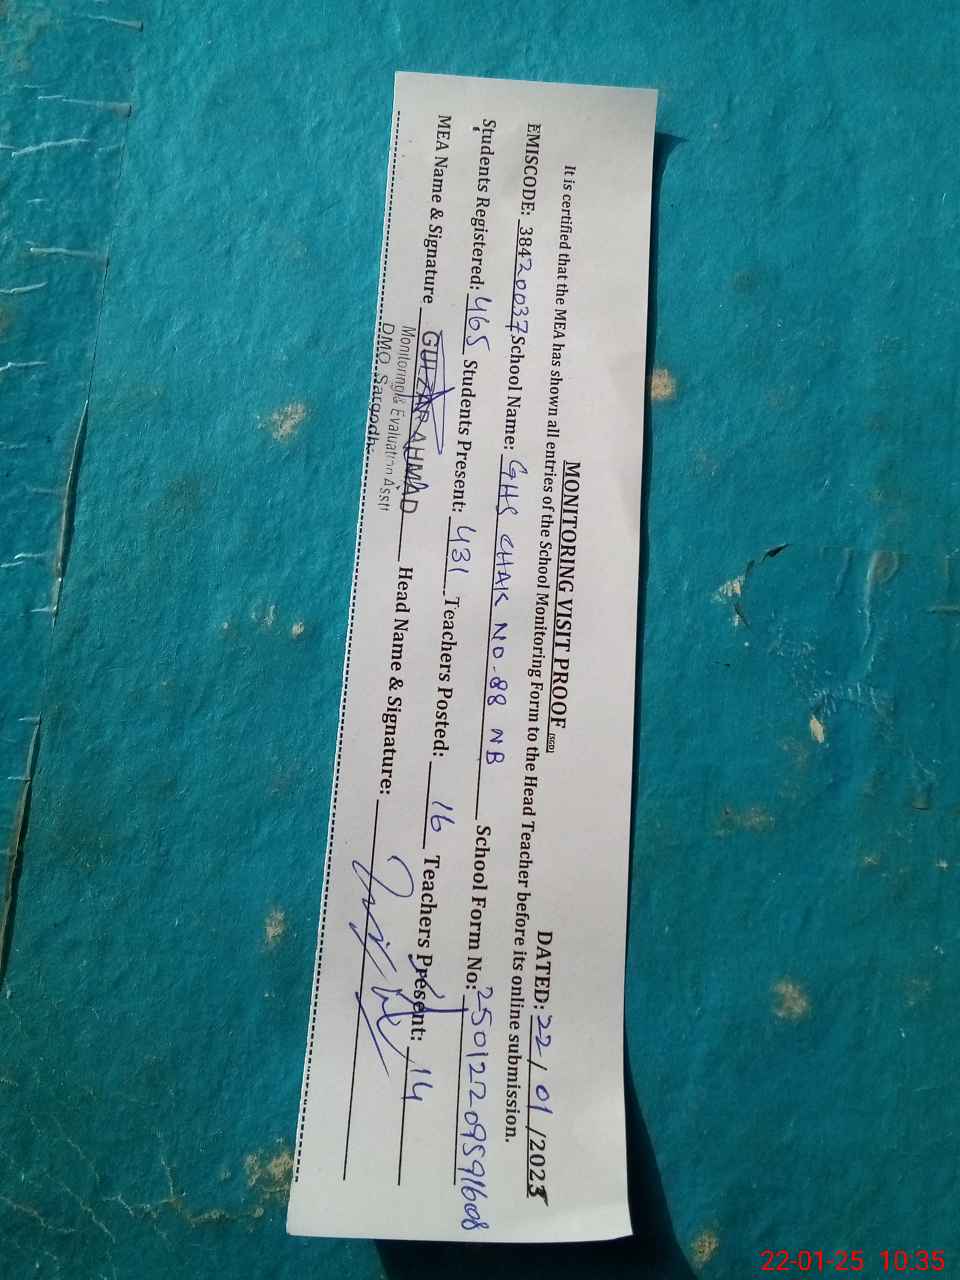 MONITORING VISIT PROOF (SGD)
DATED: 22 / 01 / 2025
It is certified that the MEA has shown all entries of the School Monitoring Form to the Head Teacher before its online submission.
EMISCODE: 38420037 School Name: GHS CHAK NO.88 NB School Form No: 25012209591608
Students Registered: 465 Students Present: 431 Teachers Posted: 16 Teachers Present: 14
MEA Name & Signature GULZAR AHMAD Head Name & Signature:
Monitoring & Evaluation Asstt
DMO Sargodh
22-01-25 10:35